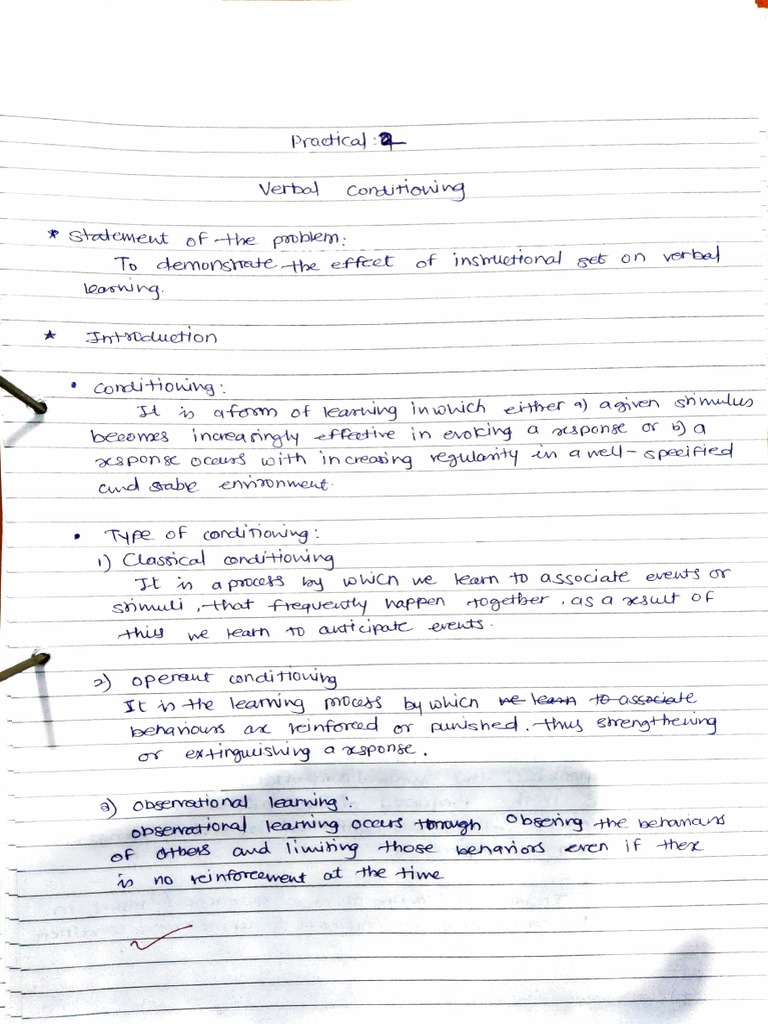 Practical : 2
Verbal Conditioning
* Statement of the problem:
To demonstrate the effect of instructional set on verbal
learning.
* Introduction
• Conditioning:
It is a form of learning in which either a) a given stimulus
becomes increasingly effective in evoking a response or b) a
response occurs with increasing regularity in a well-specified
and stable environment.
• Type of conditioning:
1) Classical conditioning
It is a process by which we learn to associate events or
stimuli, that frequently happen together. as a result of
this we learn to anticipate events.
2) operant conditioning
It is the learning process by which we learn to associate
behaviours are reinforced or punished. thus strengthening
or extinguishing a response.
3) observational learning:
observational learning occurs through Obsering the behaviours
of others and limiting those behaviors even if there
is no reinforcement at the time